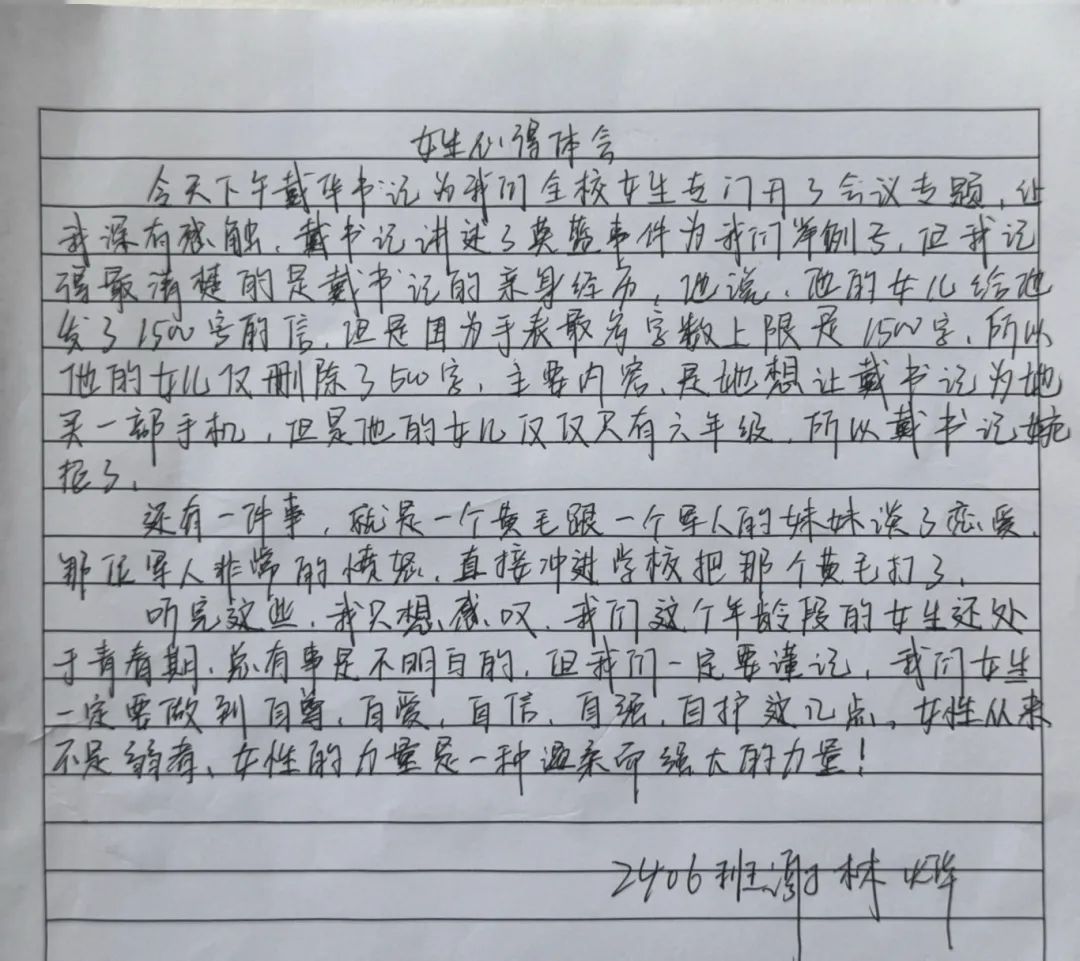 女生心得体会
今天下午戴华书记为我们全校女生专门开了会议专题，让
我深有感触，戴书记讲述了莫蓝事件为我们举例子，但我记
得最清楚的是戴书记的亲身经历，他说，他的女儿给他
发了1500字的信，但是因为手表最多字数上限是1500字，所以
他的女儿仅删除了500字，主要内容，是她想让戴书记为她
买一部手机，但是他的女儿仅仅只有六年级，所以戴书记婉
拒了，
还有一件事，就是一个黄毛跟一个军人的妹妹谈了恋爱，
那位军人非常的愤怒，直接冲进学校把那个黄毛打了，
听完这些，我只想感叹，我们这个年龄段的女生还处
于青春期，总有事是不明白的，但我们一定要谨记，我们女生
一定要做到自尊，自爱，自信，自强，自护这几点，女性从来
不是弱者，女性的力量是一种温柔而强大的力量！
2406班 林烨